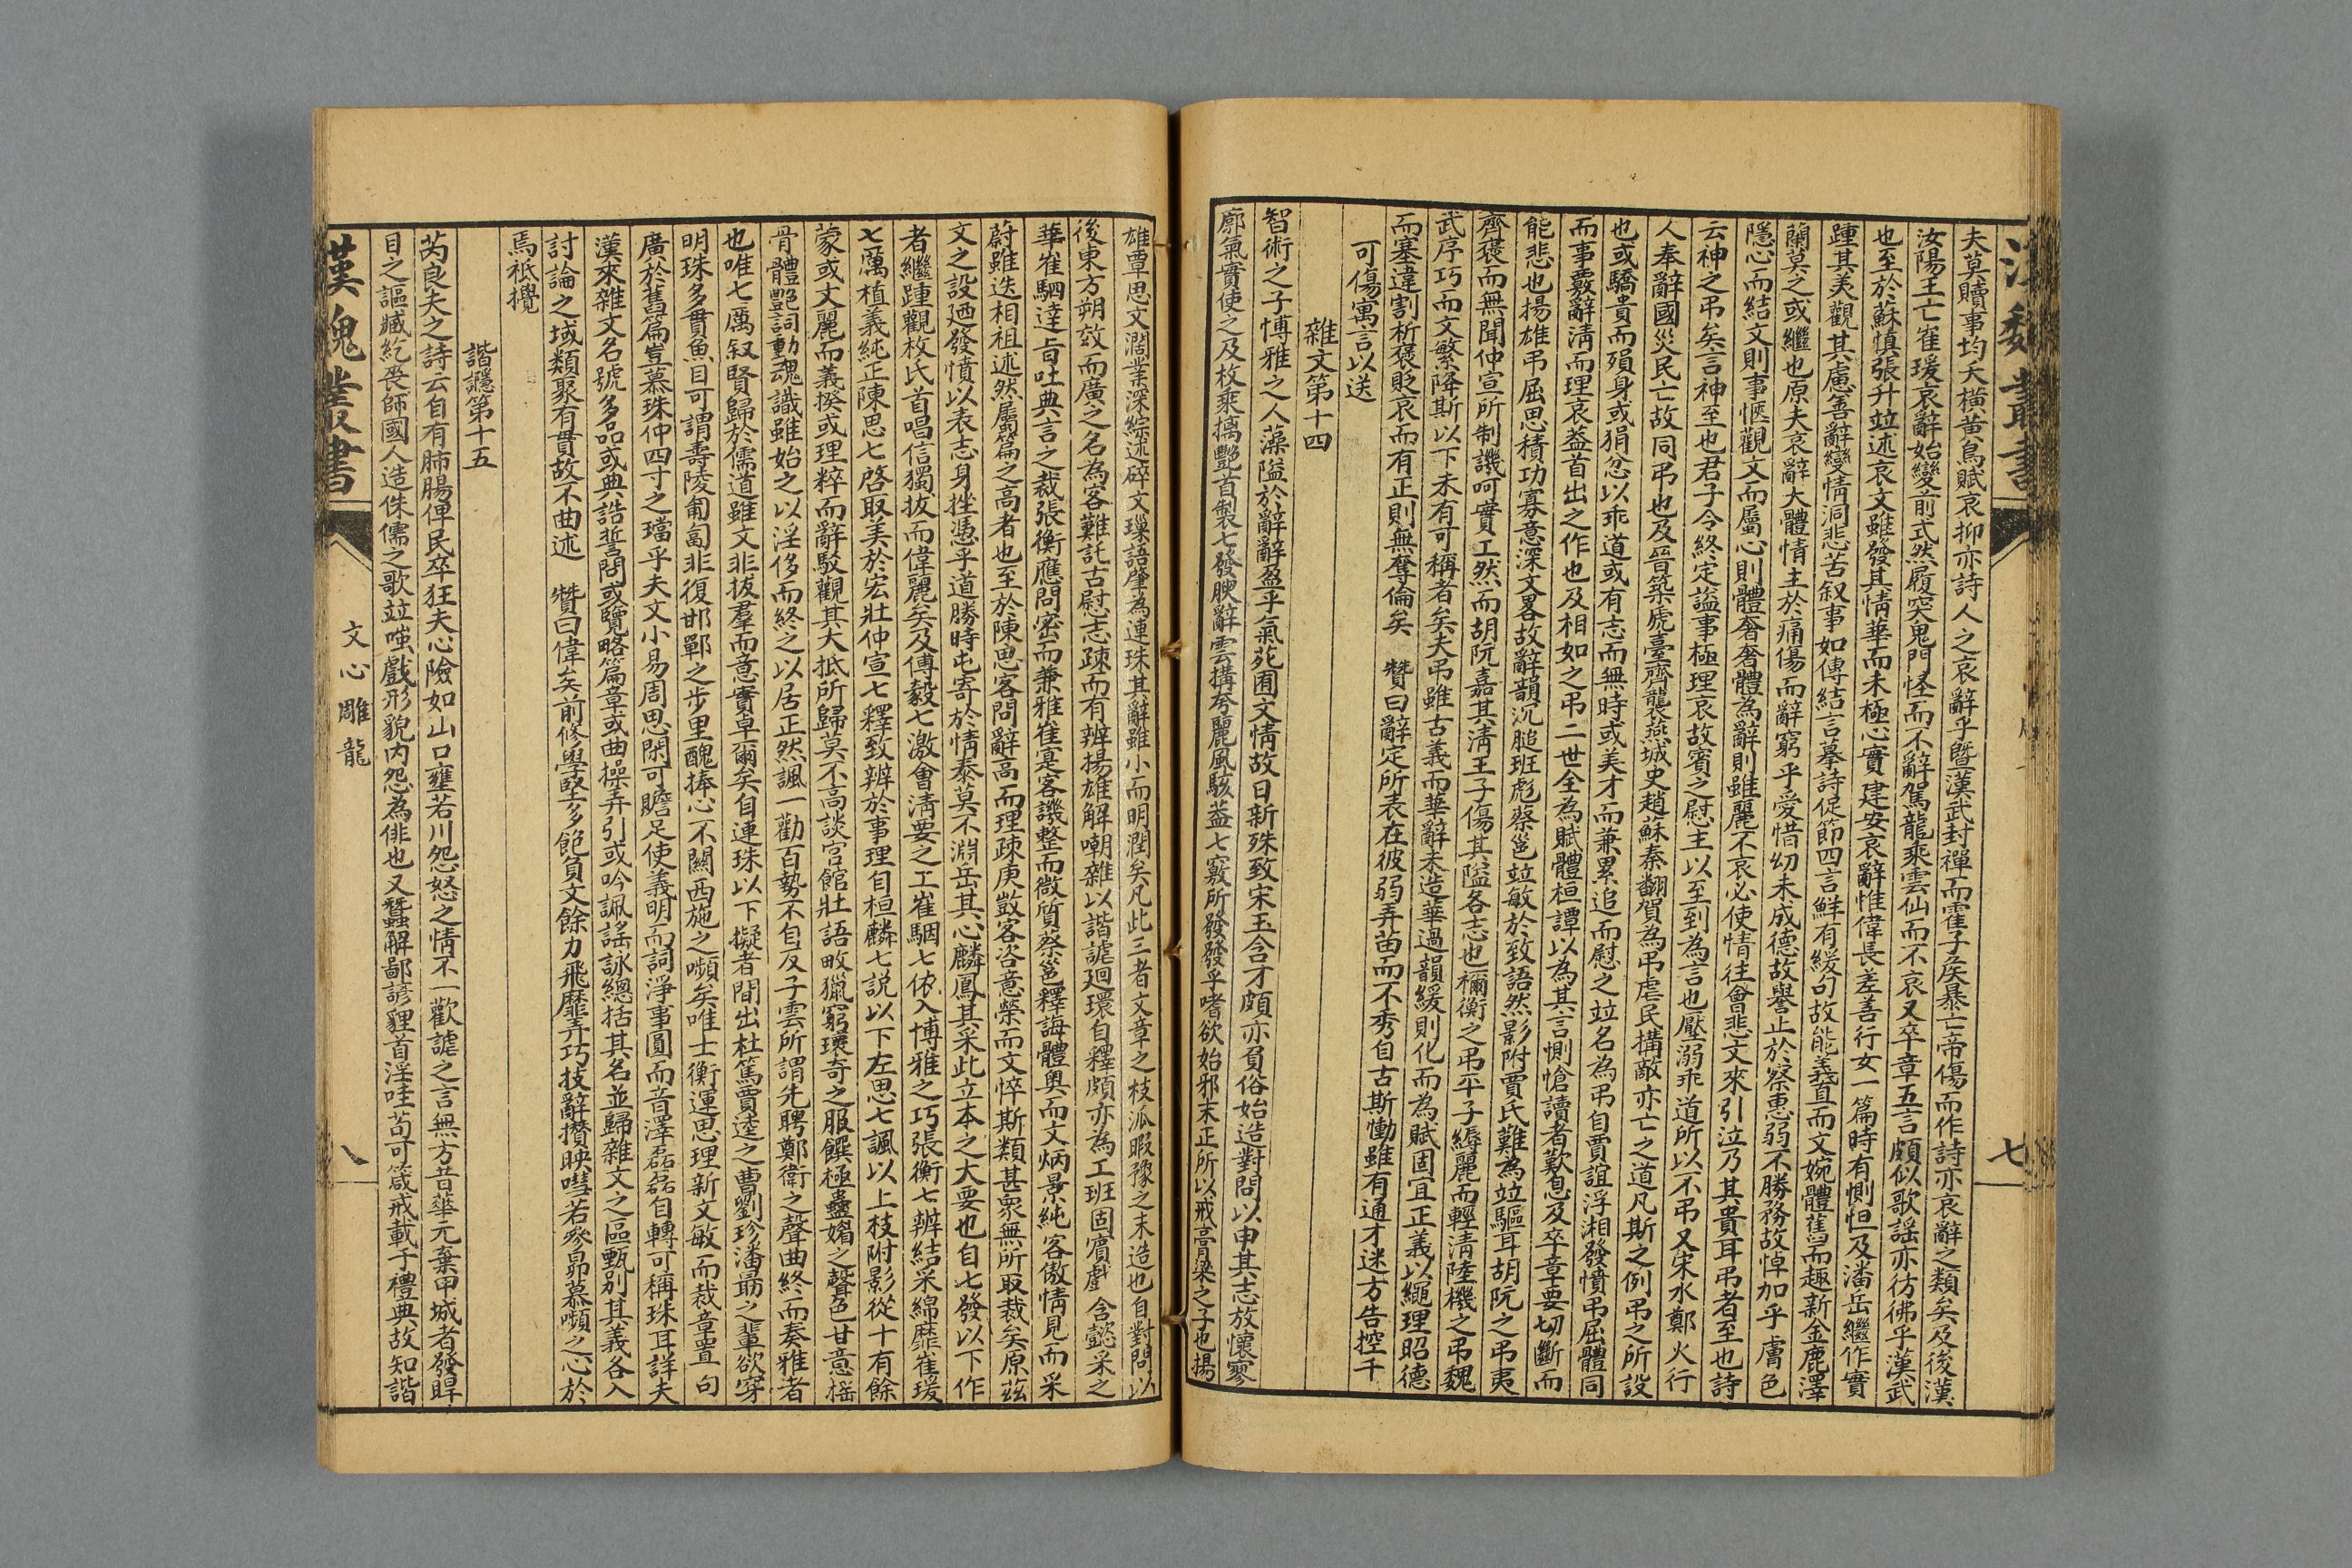 漢魏叢書
七
夫莫贖事均夭橫黃鳥賦哀抑亦詩人之哀辭乎暨漢武封禪而霍子侯暴亡帝傷而作詩亦哀辭之類矣及後漢
汝陽王亡崔瑗哀辭始變前式然履突鬼門怪而不辭駕龍乘雲仙而不哀又卒章五言頗似歌謠亦彷彿乎漢武
也至於蘇慎張升竝述哀文雖發其情華而未極心實建安哀辭惟偉長差善行女一篇時有惻怛及潘岳繼作實
踵其美觀其慮善辭變情洞悲苦叙事如傳結言摹詩促節四言鮮有緩句故能義直而文婉體舊而趣新金鹿澤
蘭莫之或繼也原夫哀辭大體情主於痛傷而辭窮乎愛惜幼未成德故譽止於察惠弱不勝務故悼加乎膚色
隱心而結文則事愜觀文而屬心則體奢奢體為辭則雖麗不哀必使情往會悲文來引泣乃其貴耳弔者至也詩
云神之弔矣言神至也君子令終定諡事極理哀故賓之慰主以至到為言也壓溺乖道所以不弔又宋水鄭火行
人奉辭國災民亡故同弔也及晉築虒臺齊襲燕城史趙蘇秦翻賀為弔虐民搆敵亦亡之道凡斯之例弔之所設
也或驕貴而殞身或狷忿以乖道或有志而無時或美才而兼累追而慰之竝名為弔自賈誼浮湘發憤弔屈體同
而事覈辭清而理哀葢首出之作也及相如之弔二世全為賦體桓譚以為其言惻愴讀者歎息及卒章要切斷而
能悲也揚雄弔屈思積功寡意深文畧故辭韻沉膇班彪蔡邕竝敏於致語然影附賈氏難為竝驅耳胡阮之弔夷
齊褒而無聞仲宣所制譏呵實工然而胡阮嘉其清王子傷其隘各志也禰衡之弔平子縟麗而輕清陸機之弔魏
武序巧而文繁降斯以下未有可稱者矣夫弔雖古義而華辭未造華過韻緩則化而為賦固宜正義以繩理昭德
而塞違割析褒貶哀而有正則無奪倫矣　贊曰辭定所表在彼弱弄苗而不秀自古斯慟雖有通才迷方告控千
可傷寓言以送
雜文第十四
智術之子愽雅之人藻隘於辭辭盈乎氣苑囿文情故日新殊致宋玉含才頗亦負俗始造對問以申其志放懷寥
廓氣實使之及枚乘摛艷首製七發腴辭雲搆夸麗風駭葢七竅所發發乎嗜欲始邪末正所以戒膏粱之子也揚
雄覃思文濶業深綜述碎文璅語肇為連珠其辭雖小而明潤矣凡此三者文章之枝派暇豫之末造也自對問以
後東方朔效而廣之名為客難託古慰志疎而有辨揚雄解嘲雜以諧謔廻環自釋頗亦為工班固賓戲含懿采之
華崔駰達旨吐典言之裁張衡應問密而兼雅崔寔客譏整而微質蔡邕釋誨體奧而文炳景純客傲情見而采
蔚雖迭相祖述然屬篇之高者也至於陳思客問辭高而理疎庾敳客咨意榮而文悴斯類甚衆無所取裁矣原茲
文之設廼發憤以表志身挫憑乎道勝時屯寄於情泰莫不淵岳其心麟鳳其采此立本之大要也自七發以下作
者繼踵觀枚氏首唱信獨拔而偉麗矣及傅毅七激會清要之工崔駰七依入博雅之巧張衡七辨結采綿靡崔瑗
七厲植義純正陳思七啓取美於宏壯仲宣七釋致辨於事理自桓麟七説以下左思七諷以上枝附影從十有餘
蒙或文麗而義揆或理粹而辭駁觀其大抵所歸莫不高談宮館壯語畋獵窮瓌奇之服饌極蠱媚之聲色甘意揺
骨體艷詞動魂識雖始之以淫侈而終之以居正然諷一勸百勢不自反子雲所謂先騁鄭衛之聲曲終而奏雅者
也唯七厲叙賢歸於儒道雖文非拔羣而意實卓爾矣自連珠以下擬者間出杜篤賈逵之曹劉珍潘朂之輩欲穿
明珠多貫魚目可謂壽陵匍匐非復邯鄲之步里醜捧心不關西施之嚬矣唯士衡運思理新文敏而裁章置句
廣於舊篇豈慕珠仲四寸之璫乎夫文小易周思閑可贍足使義明而詞淨事圓而音澤磊磊自轉可稱珠耳詳夫
漢來雜文名號多品或典誥誓問或覽略篇章或曲操弄引或吟諷謠詠總括其名並歸雜文之區甄别其義各入
討論之域類聚有貫故不曲述　贊曰偉矣前修學堅多飽負文餘力飛靡弄巧技辭攅映嘒若參昴慕嚬之心於
焉祇攪
諧讔第十五
芮良夫之詩云自有肺腸俾民卒狂夫心險如山口壅若川怨怒之情不一歡謔之言無方昔華元棄甲城者發睅
目之謳臧紇喪師國人造侏儒之歌竝嗤戲形貌内怨為俳也又蠶蟹鄙諺貍首淫哇苟可箴戒載于禮典故知諧
漢魏叢書
文心雕龍
八